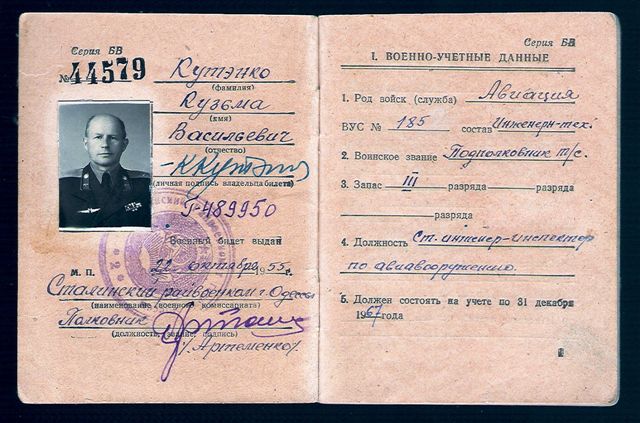 Серия БВ
№ 44579
Кутэнко
(фамилия)
Кузьма
(имя)
Васильевич
(отчество)
(личная подпись владельца билета)
Г-489950
Военный билет выдан
М. П.
22 октября 1955 г.
Сталинский райвоенком г. Одессы
(наименование военного комиссариата)
Полковник
(должность, звание, подпись)
/Артеменко/
Серия БВ
I. ВОЕННО-УЧЕТНЫЕ ДАННЫЕ
1. Род войск (служба) Авиация
ВУС № 185 состав Инженерн-тех.
2. Воинское звание Подполковник т/с.
3. Запас III разряда разряда
разряда
4. Должность Ст. инженер-инспектор
по авиавооружению.
5. Должен состоять на учете по 31 декабря
1967 года